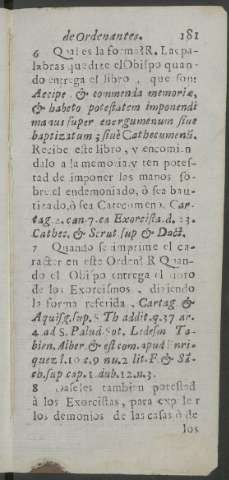 de Ordenantes. 181
6 Qual es la forma? R. Las pa-
labras que dize el Obispo quan-
do entrega el libro, que son:
Accipe, & commenda memoriæ,
& habeto potestatem imponendi
manus super energumenum sive
baptizatum, sivè Cathecumenũ.
Recibe este libro, y encomien
dalo a la memoria, y ten potes-
tad de imponer las manos so-
bre el endemoniado, ò sea bau-
tizado, ò sea Catecumeno. Car-
tag. 4. can. 7. ea Exorcista. d. 23.
Cathec. & Scrut. sup. & Doct.
7 Quando se imprime el ca-
racter en este Orden? R. Quan-
do el Obispo entrega el libro
de los Exorcismos, diziendo
la forma referida. Cartag. &
Aquisg. sup. S. Th. addit. q. 37. ar.
4. ad 5. Palud. Sot. Ledesm. Ta-
bien. Alber. & est com. apud Enri-
quez l. 10. c. 9. nu. 2. lit. F. & Sã-
ch. sup. cap. 1. dub. 12. n. 3.
8 Daseles tambien potestad
à los Exorcistas, para expeler
los demonios de las casas ò de
los